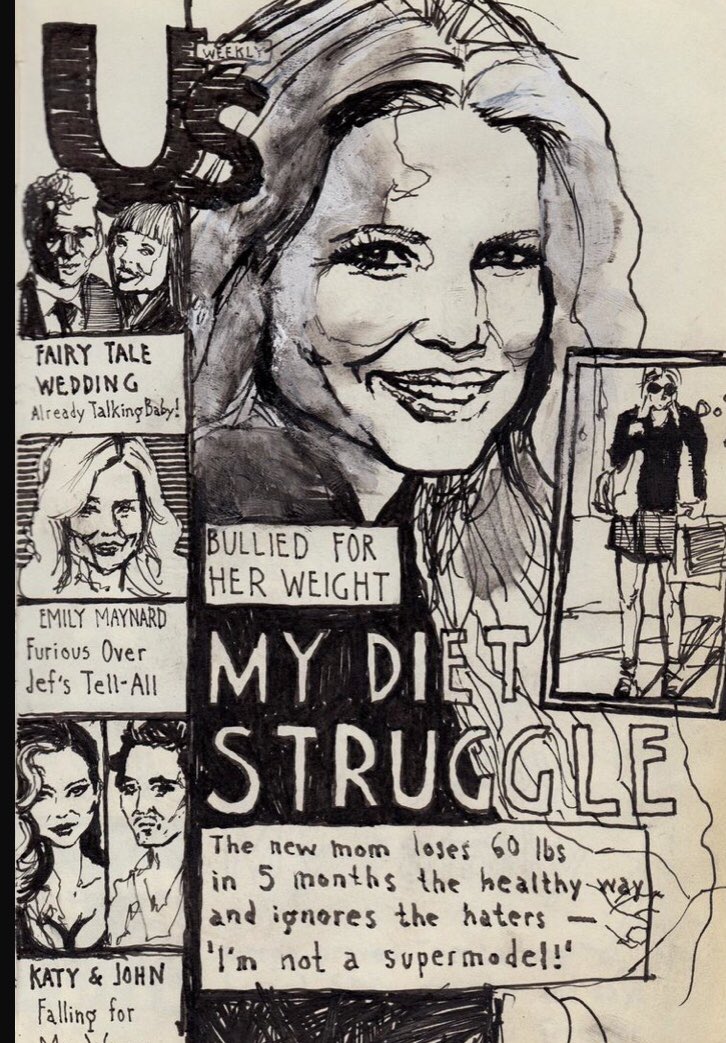 Us
WEEKLY
FAIRY TALE
WEDDING
Already Talking Baby!
EMILY MAYNARD
Furious Over
Jef's Tell-All
KATY & JOHN
Falling for
BULLIED FOR
HER WEIGHT
MY DIET
STRUGGLE
The new mom loses 60 lbs
in 5 months the healthy way
and ignores the haters —
'I'm not a supermodel!'